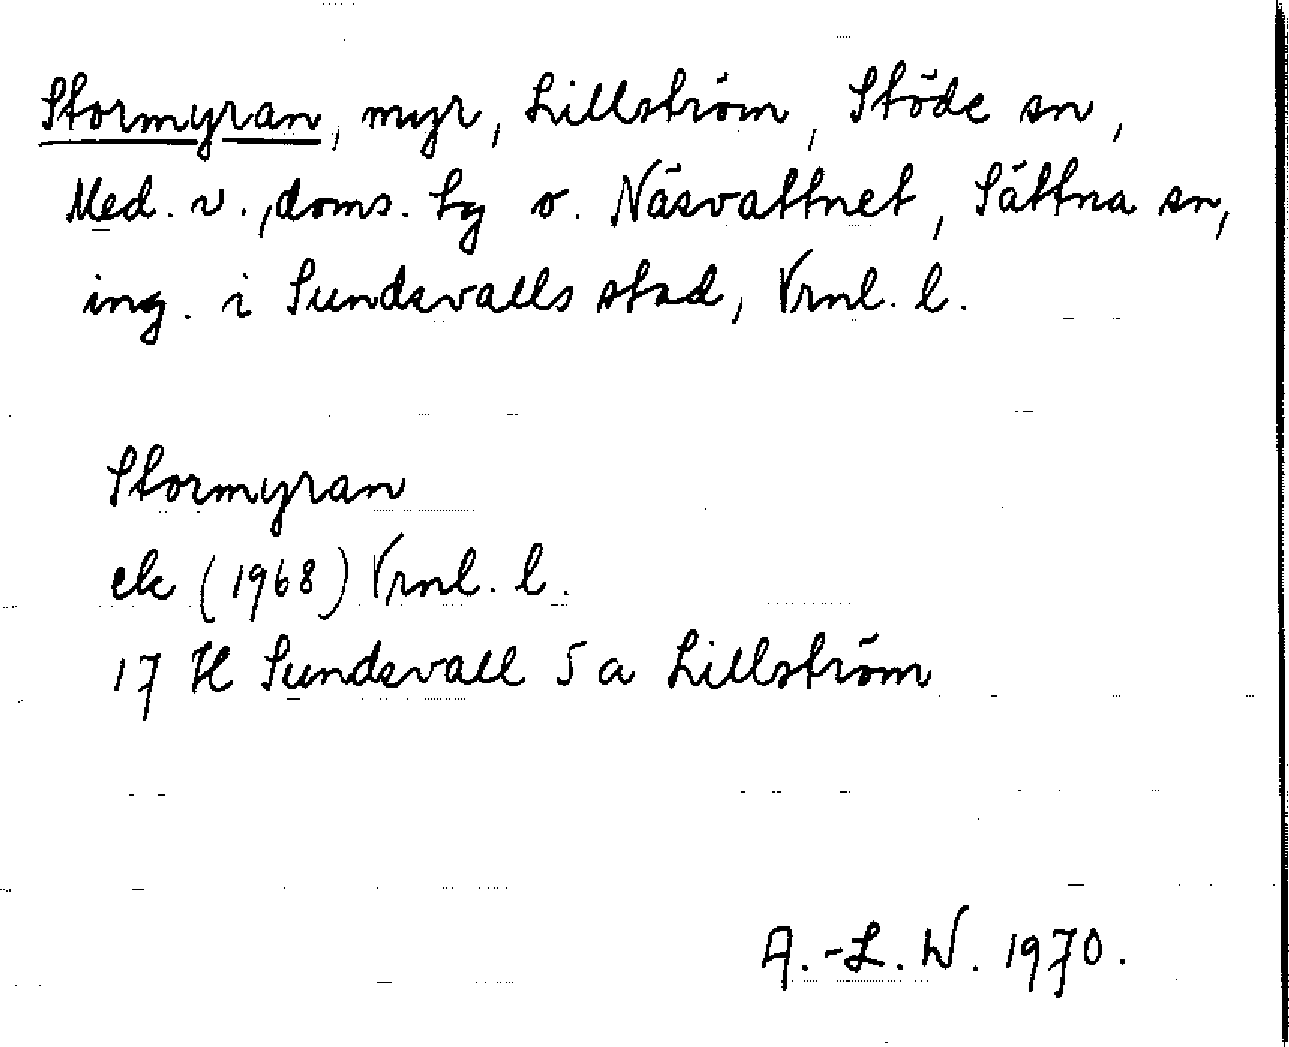 Stormyran, myr, Lillström, Stöde sn,
Med. v., doms. hg o. Näsvattnet, Sättna sn,
ing. i Sundsvalls stad, Vrnl. l.
Stormyran
ek (1968) Vrnl. l.
17 H Sundsvall 5 a Lillström
A.-L. W. 1970.